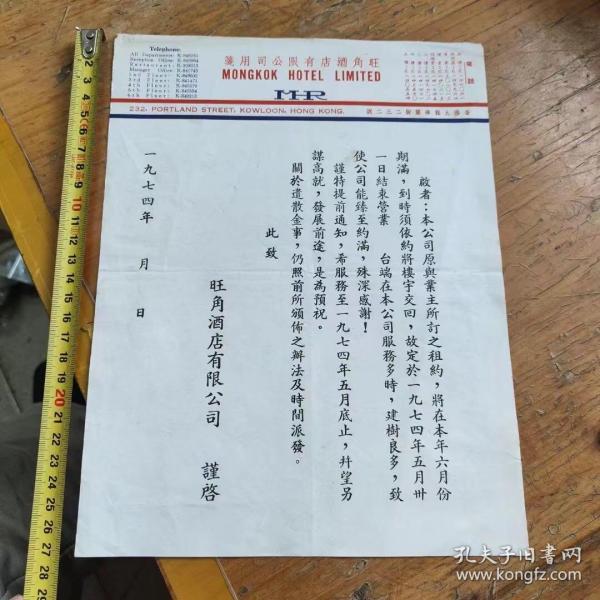 旺角酒店有限公司用箋
MONGKOK HOTEL LIMITED
MHR
232, PORTLAND STREET, KOWLOON, HONG KONG.
Telephone:
All Departments:
Reception Office:
Restaurant:
Manager Office:
2nd Floor:
3rd Floor:
4th Floor:
5th Floor:
6th Floor:
電話
啟者：本公司原與業主所訂之租約，將在本年六月份
期滿，到時須依約將樓宇交回，故定於一九七四年五月卅
一日結束營業 台端在本公司服務多時，建樹良多，致
使公司能臻至約滿，殊深感謝！
謹特提前通知，希服務至一九七四年五月底止，幷望另
謀高就，發展前途，是為預祝。
關於遣散金事，仍照前所頒佈之辦法及時間派發。
此致
旺角酒店有限公司 謹啓
一九七四年 月 日
孔夫子旧書网
www.kongfz.com